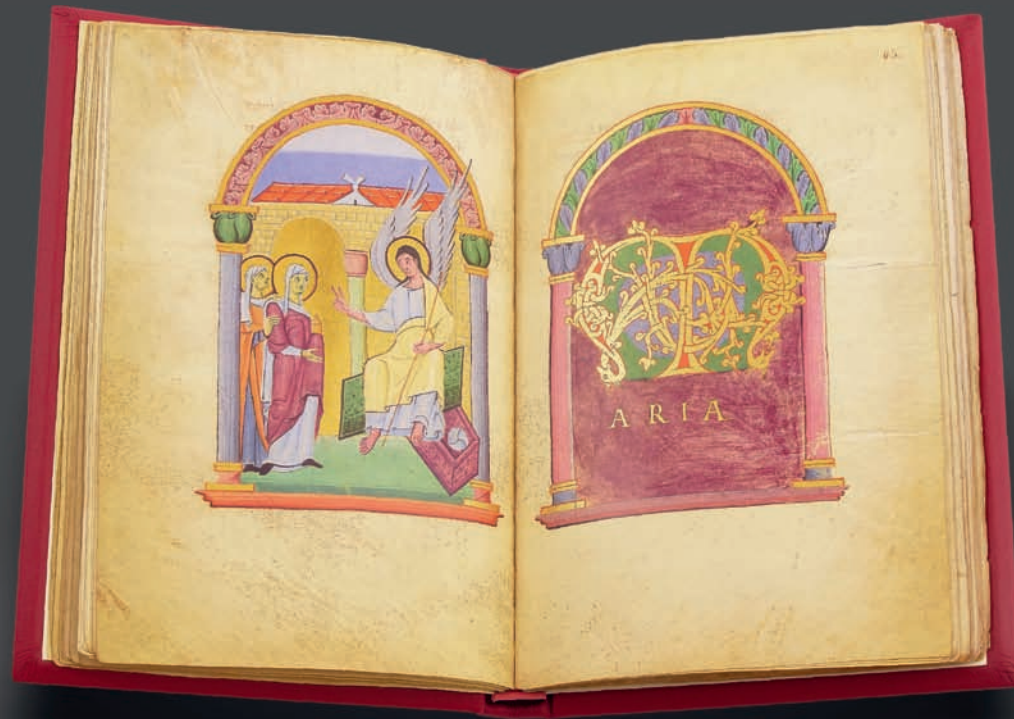 M
ARIA